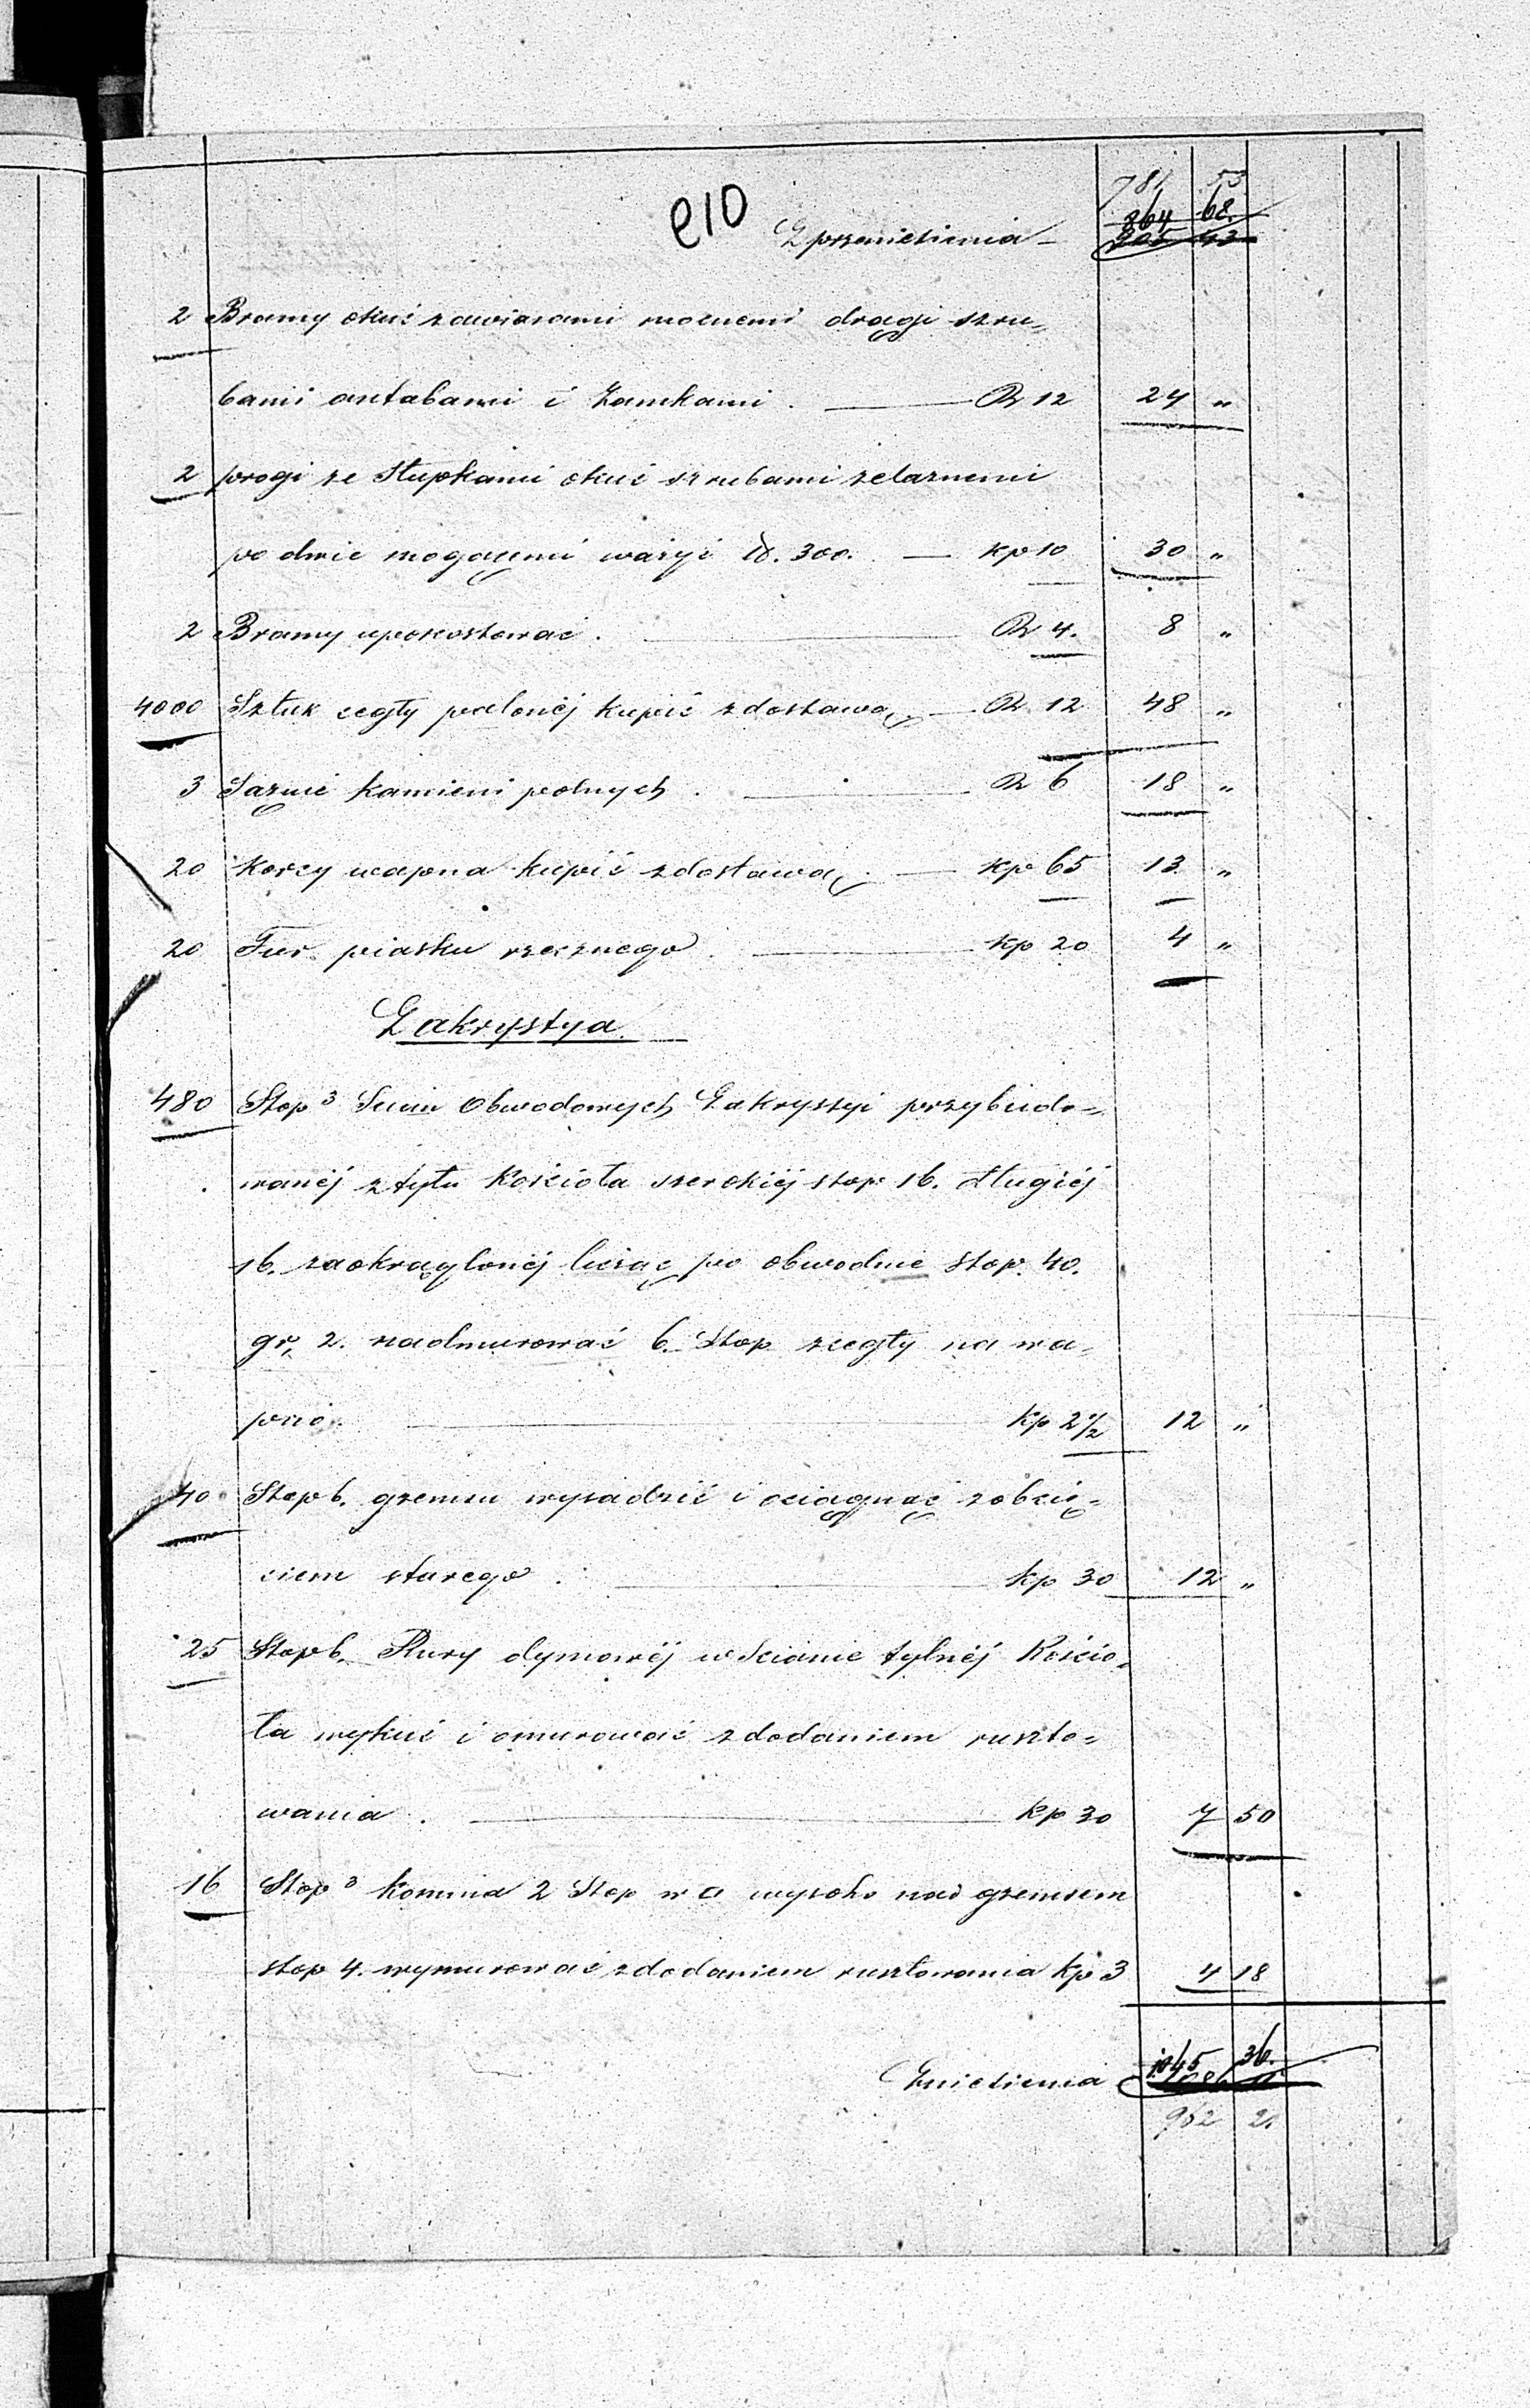 781 53
864 68
905 43
Z przeniesienia
2 Bramy okuć zawiasami mocnemi drągi szru=
bami antabami i Zamkami. — R 12 24 „
2 progi ze Słupkami okuć szrubami żelaznemi
po dwie mogącemi ważyć 300. — kp 10 30 „
2 Bramy upokostować. — R 4. 8 „
4000 Sztuk cegły palonéj kupić z dostawą — R 12 48 „
3 Sążnie kamieni polnych. — R 6 18 „
20 Korcy wapna kupić z dostawą. — kp 65 13 „
20 Fur piasku rzecznego. — kp 20 4 „
Zakrystya
480 Stop 3 Ścian Obwodowych Zakrystyi przybudo=
wanéj z tyłu Kościoła szerokiéj stop 16. długiéj
16. zaokrąglonéj licząc po obwodnie stop. 40.
gr. 2. nadmurować 6. Stop z cegły na wa=
pno. — kp 2 1/2 12 „
40 Stop b. gzemsu wysadzić i ociągnąć z obcię=
ciem starego. — kp 30 12 „
25 Stop b. Rury dymowéj w Scianie tylnéj Kościo=
ła wykuć i omurować z dodaniem ruszto=
wania. — kp 30 7 50
16 Stop 3 Komina 2 Stop w a wysoko nad gzemsem
stop 4. wymurować z dodaniem rusztowania kp 3 4 18
Zniesienia 1045 36.
962 21